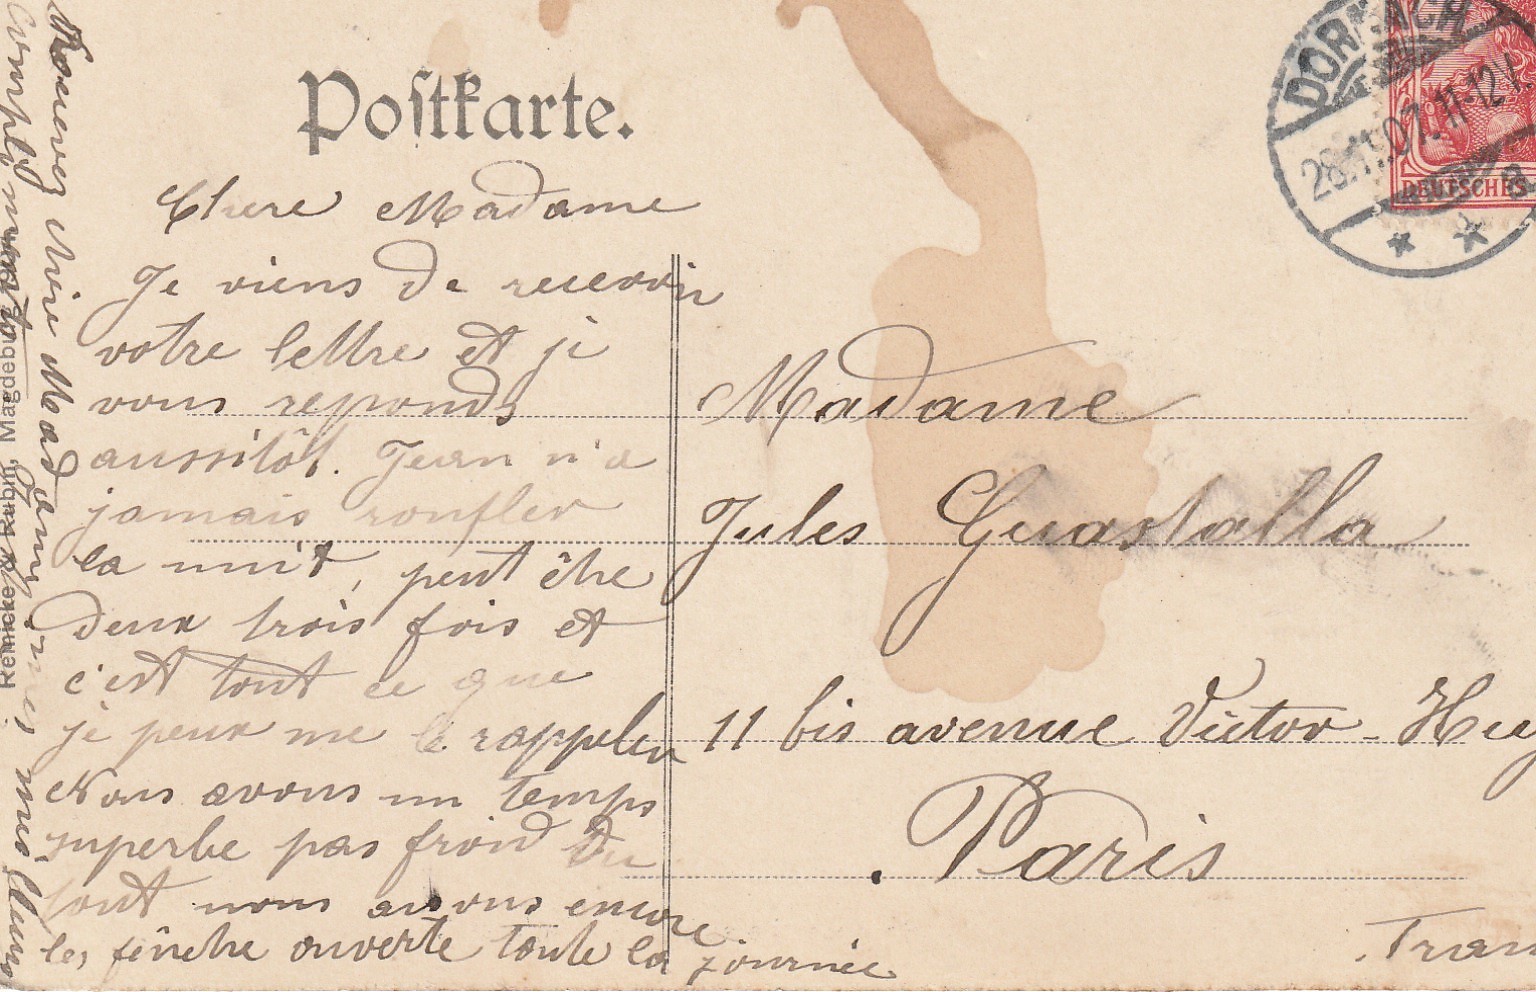 Postkarte.
Chere Madame
Je viens de recevoir
votre lettre et je
vous reponds
aussitôt. Jean n'a
jamais ronfler
la nuit, peut être
deux trois fois et
c'est tout ce que
je peux me le rappeler
Nous avons un temps
superbe pas froid du
tout nous avons encore
les fenêtre ouverte toute la journée
Recevez chère Madame, mes meilleurs
compliments
Reinicke & Rubin, Magdeburg
DORNACH
28.11.07.11-12V.
DEUTSCHES
Madame
Jules Guastalla
11 bis avenue Victor-Hug
Paris